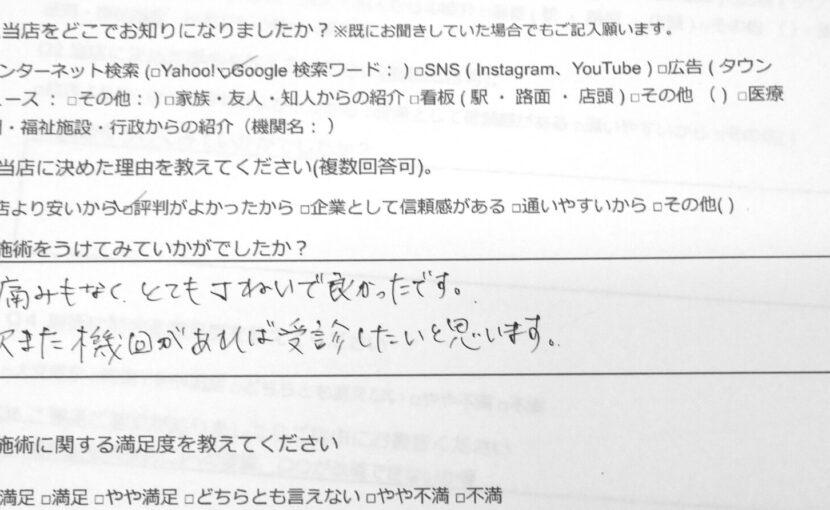 当店をどこでお知りになりましたか？※既にお聞きしていた場合でもご記入願います。
ンターネット検索 (□Yahoo! □Google 検索ワード： ) □SNS ( Instagram、YouTube ) □広告 ( タウン
ュース： □その他：) □家族・友人・知人からの紹介 □看板 ( 駅 ・ 路面 ・ 店頭 ) □その他 （ ） □医療
・福祉施設・行政からの紹介（機関名： ）
当店に決めた理由を教えてください(複数回答可)。
店より安いから □評判がよかったから □企業として信頼感がある □通いやすいから □その他( )
施術をうけてみていかがでしたか？
痛みもなく、とても丁ねいで良かったです。
次また機回があれば受診したいと思います。
施術に関する満足度を教えてください
満足 □満足 □やや満足 □どちらとも言えない □やや不満 □不満